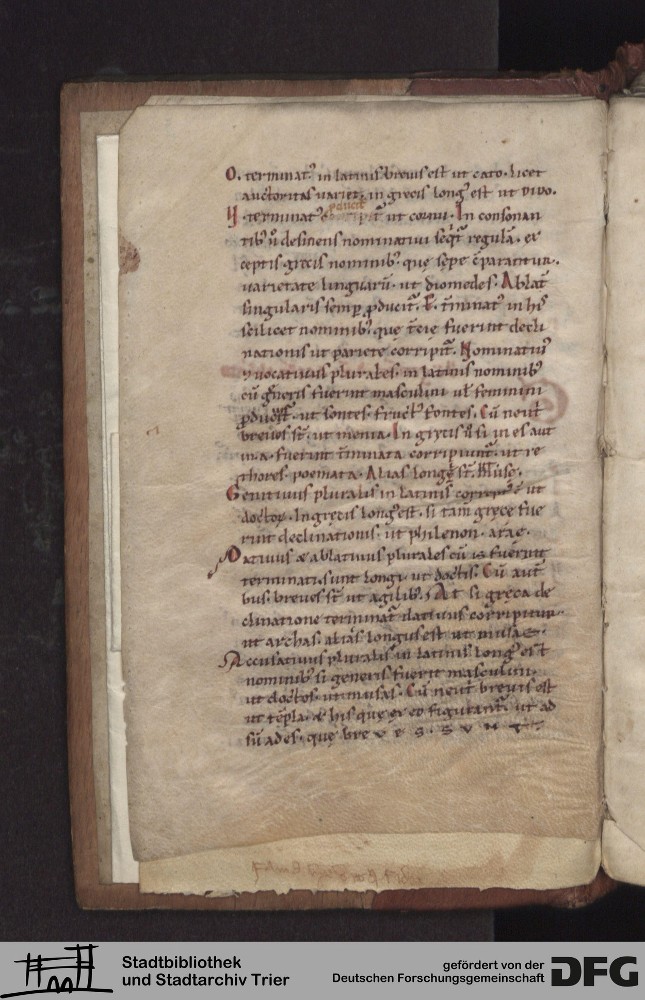 O. terminat᷒ in latinis brevis est ut cato. licet
auctoritas variet. in grecis long᷒ est ut dido.
terminat᷒ corripit᷒ ut cornu. In consonan
tib᷒ u̅ desinens nominativi seqt᷒ regulā. ex
ceptis grecis nominib᷒. que sepe
varietate linguarū. ut diomedes. Ablat᷒
singularis semp ꝓducit᷒. E. t̅minat᷒ in his
scilicet nominib᷒. que t̅cie fuerint decli
nationis ut pariete corripit᷒. Nominativ᷒
⁊ vocativus plurales. in latinis nominib᷒
cū gn̅eris fuerint masculini ul̅ feminini
ut fontes. Cū neut᷒
breves st̅. ut In grecis u̅ si in es aut
in a. fuerint t̅minata corripiunt᷒. ut re
thores. poemata. Alias longe st̅. ut
Genitivus pluralis in latinis ut
doctor. In grecis long᷒ est. si tam grece fue
rint declinationis. ut philenon. arae.
Dativus & ablativus plurales cū is fuerint
terminati. sunt longi. ut doctis. Cū aut̅
bus. breves st̅ ut agilib᷒. At si greca de
clinatione terminat᷒ dativus corripitur.
ut archas. alias longus est ut musae.
Accusativus pluralis in latinis long᷒ est
nominib᷒ si generis fuerit masculini.
ut doctos. ut musas. Cū neut᷒ brevis est
ut te̅pla. & his que ex eo figurant᷒. ut ad
su̅ ades. que breves. SVNT.
Stadtbibliothek
und Stadtarchiv Trier
gefördert von der
Deutschen Forschungsgemeinschaft
DFG